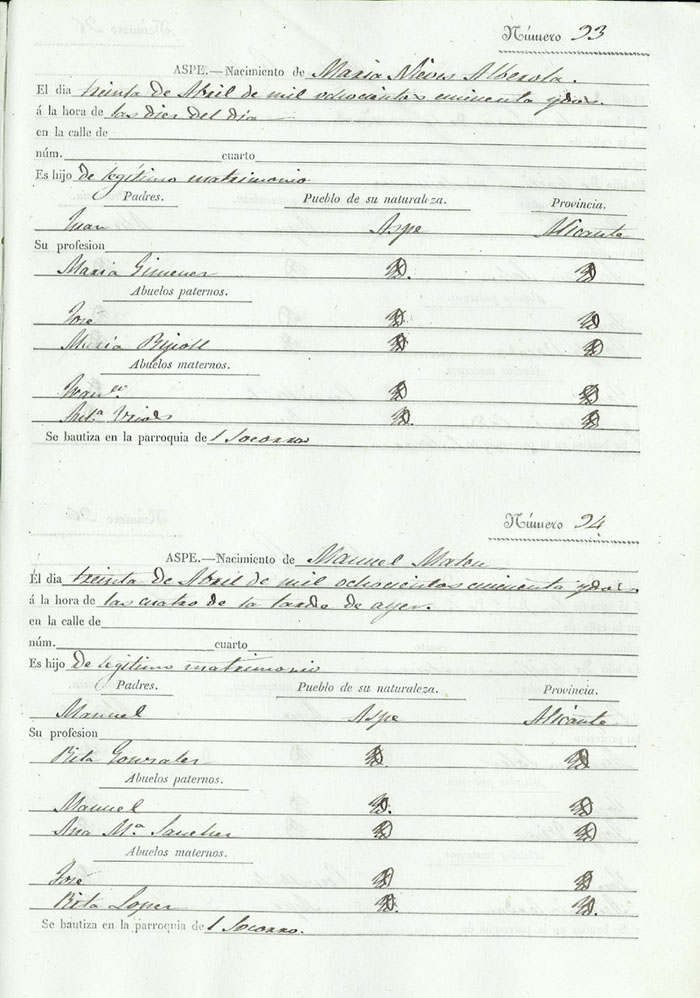 Número 93
ASPE.—Nacimiento de Maria Nieves Alberola.
El dia treinta de Abril de mil ochocientos cincuenta y dos.
á la hora de las diez del dia
en la calle de
núm. cuarto
Es hijo de legitimo matrimonio
Padres. Pueblo de su naturaleza. Provincia.
Juan Aspe Alicante
Su profesion
Maria Gimenez
Abuelos paternos.
José
Maria Ripoll
Abuelos maternos.
Fran.co
Ant.a
Se bautiza en la parroquia de l Socorro
Número 94
ASPE.—Nacimiento de Manuel Mateu
El dia treinta de Abril de mil ochocientos cincuenta y dos
á la hora de las cuatro de la tarde de ayer.
en la calle de
núm. cuarto
Es hijo de legitimo matrimonio
Padres. Pueblo de su naturaleza. Provincia.
Manuel Aspe Alicante
Su profesion
Rita Gonzalez
Abuelos paternos.
Manuel
Ana M.a Sanchez
Abuelos maternos.
José
Rita Lopez
Se bautiza en la parroquia de l Socorro.